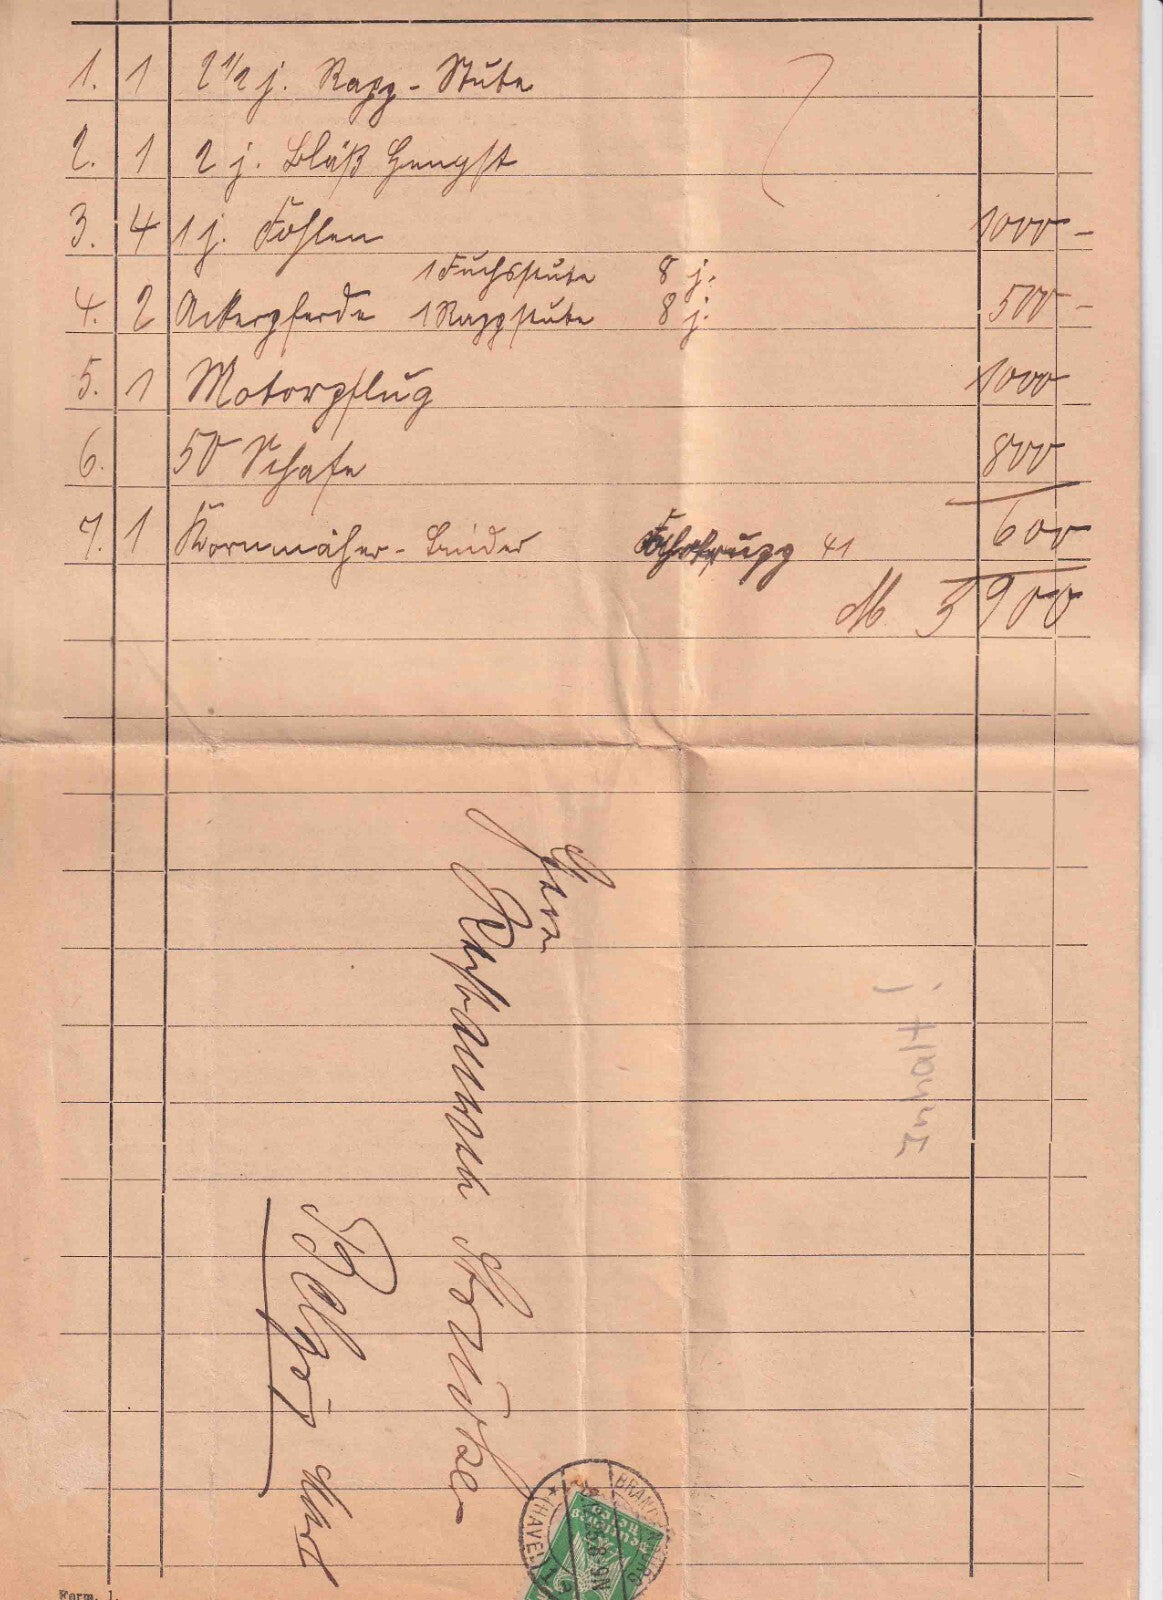 1. 1 2 1/2 j. Rapp-Stute
2. 1 2 j. Bläß Hengst
3. 4 1 j. Fohlen 1000 -
1 Fuchsstute 8 j.
4. 2 Ackerpferde 1 Rappstute 8 j. 500 -
5. 1 Motorpflug 1000
6. 50 Schafe 800
7. 1 Kornmäher-Binder 41 600
M 3900
Herrn
Belzig
BRANDENBURG
(HAVEL)
8-9N
Form. 1.